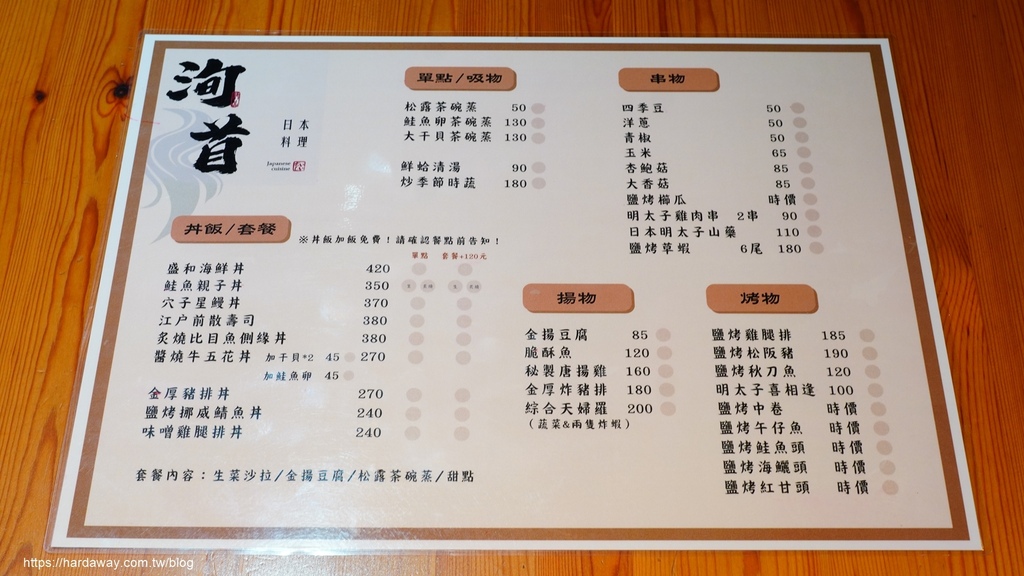 洵昔
日本
料理
Japanese
cuisine
單點/吸物
松露茶碗蒸 50
鮭魚卵茶碗蒸 130
大干貝茶碗蒸 130
鮮蛤清湯 90
炒季節時蔬 180
串物
四季豆 50
洋蔥 50
青椒 50
玉米 65
杏鮑菇 85
大香菇 85
鹽烤櫛瓜 時價
明太子雞肉串 2串 90
日本明太子山藥 110
鹽烤草蝦 6尾 180
丼飯/套餐
※丼飯加飯免費!請確認餐點前告知!
單點 套餐+120元
盛和海鮮丼 420
鮭魚親子丼 350
穴子星鰻丼 370
江户前散壽司 380
炙燒比目魚側緣丼 380
醬燒牛五花丼 加干貝*2 45 270
加鮭魚卵 45
金厚豬排丼 270
鹽烤挪威鯖魚丼 240
味噌雞腿排丼 240
套餐內容:生菜沙拉/金揚豆腐/松露茶碗蒸/甜點
揚物
金揚豆腐 85
脆酥魚 120
秘製唐揚雞 160
金厚炸豬排 180
綜合天婦羅 200
(蔬菜&兩隻炸蝦)
烤物
鹽烤雞腿排 185
鹽烤松阪豬 190
鹽烤秋刀魚 120
明太子喜相逢 100
鹽烤中卷 時價
鹽烤午仔魚 時價
鹽烤鮭魚頭 時價
鹽烤海鱺頭 時價
鹽烤紅甘頭 時價
https://hardaway.com.tw/blog